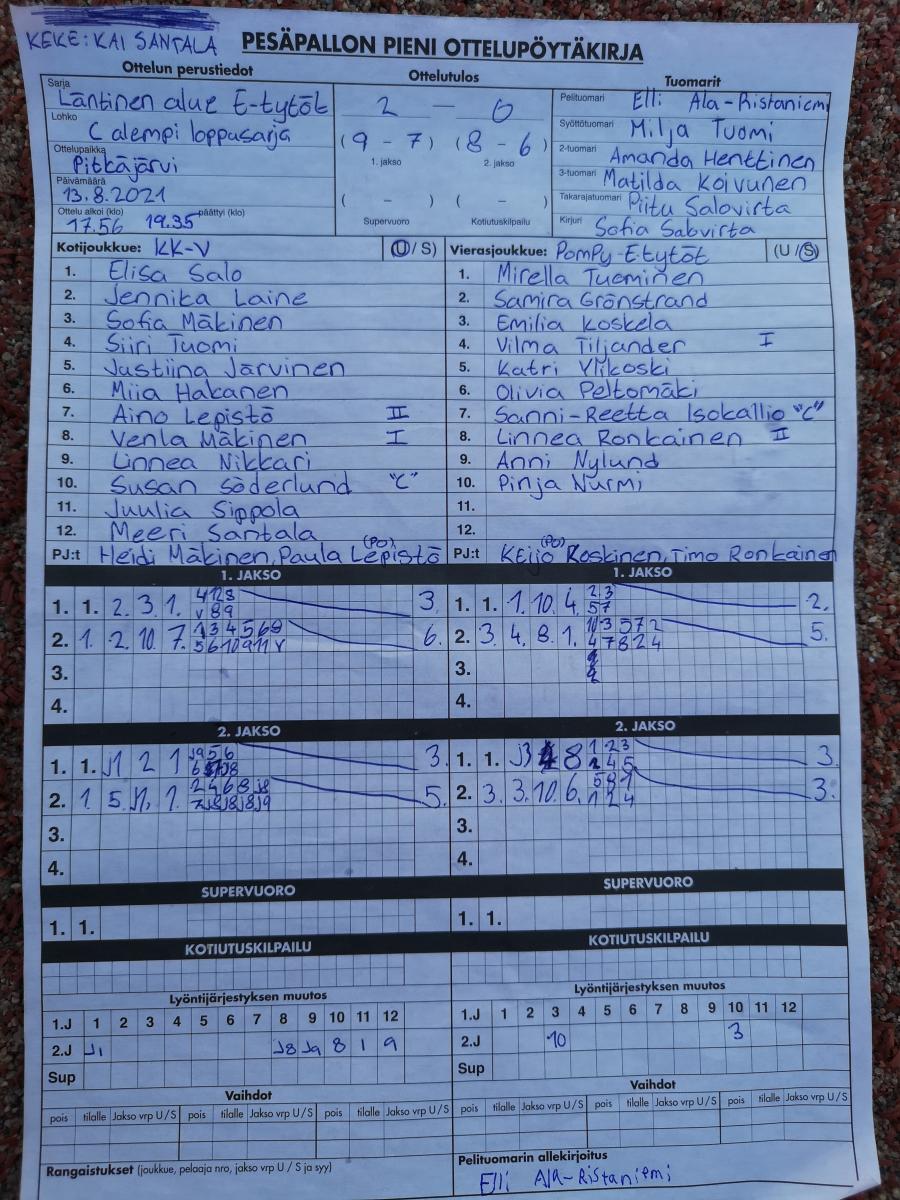 KEKE: KAI SANTALA
PESÄPALLON PIENI OTTELUPÖYTÄKIRJA
Ottelun perustiedot
Sarja
Läntinen alue E-tytöt
Lohko
C alempi loppusarja
Ottelupaikka
Pitkäjärvi
Päivämäärä
13.8.2021
Ottelu alkoi (klo) päättyi (klo)
17.56 19.35
Ottelutulos
2 - 0
(9 - 7) (8 - 6)
1. jakso 2. jakso
( - ) ( - )
Supervuoro Kotiutuskilpailu
Tuomarit
Pelituomari Elli Ala-Ristaniemi
Syöttötuomari Milja Tuomi
2-tuomari Amanda Henttinen
3-tuomari Matilda Koivunen
Takarajatuomari Piitu Salovirta
Kirjuri Sofia Salovirta
Kotijoukkue: KK-V (U / S)
1. Elisa Salo
2. Jennika Laine
3. Sofia Mäkinen
4. Siiri Tuomi
5. Justiina Järvinen
6. Miia Hakanen
7. Aino Lepistö II
8. Venla Mäkinen I
9. Linnea Nikkari
10. Susan Söderlund "C"
11. Juulia Sippola
12. Meeri Santala
PJ:t Heidi Mäkinen, Paula Lepistö (PO)
Vierasjoukkue: PomPy E-tytöt (U / S)
1. Mirella Tuominen
2. Samira Grönstrand
3. Emilia Koskela
4. Vilma Tiljander I
5. Katri Ylikoski
6. Olivia Peltomäki
7. Sanni-Reetta Isokallio "C"
8. Linnea Ronkainen II
9. Anni Nylund
10. Pinja Nurmi
11.
12.
PJ:t Keijo Koskinen, Timo Ronkainen (PO)
1. JAKSO
1. 1. 2. 3. 1. 3.
2. 1. 2. 10. 7. 6.
3.
4.
1. JAKSO
1. 1. 1. 10. 4. 2.
2. 3. 4. 8. 1. 5.
3.
4.
2. JAKSO
1. 1. J1 2 1 3.
2. 1. 5. 1. 5.
3.
4.
2. JAKSO
1. 1. J3 8 3.
2. 3. 3. 10. 6. 3.
3.
4.
SUPERVUORO
1. 1.
SUPERVUORO
1. 1.
KOTIUTUSKILPAILU
KOTIUTUSKILPAILU
Lyöntijärjestyksen muutos
1.J 1 2 3 4 5 6 7 8 9 10 11 12
2.J J1 J8 J9 8 1 9
Sup
Lyöntijärjestyksen muutos
1.J 1 2 3 4 5 6 7 8 9 10 11 12
2.J 10 3
Sup
Vaihdot
pois tilalle Jakso vrp U / S pois tilalle Jakso vrp U / S pois tilalle Jakso vrp U / S
Vaihdot
pois tilalle Jakso vrp U / S pois tilalle Jakso vrp U / S pois tilalle Jakso vrp U / S
Rangaistukset (joukkue, pelaaja nro, jakso vrp U / S ja syy)
Pelituomarin allekirjoitus
Elli Ala-Ristaniemi